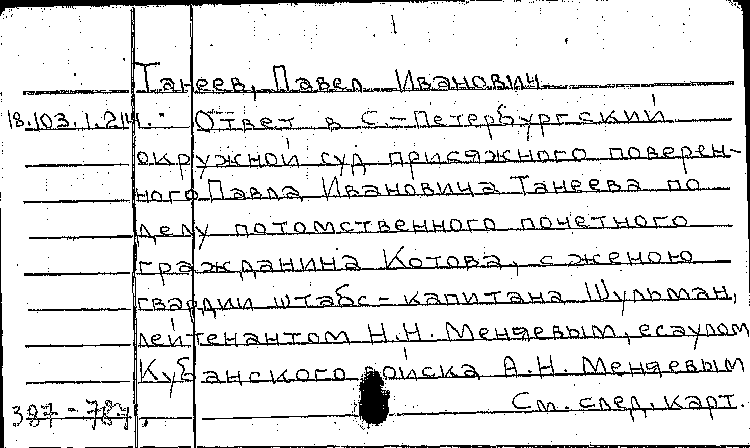 1
Танеев, Павел Иванович
18.103.1.214. Ответ в С.-Петербургский
окружной суд присяжного поверен-
ного Павла Ивановича Танеева по
делу потомственного почетного
гражданина Котова, с женою
гвардии штабс-капитана Шульман,
лейтенантом Н.Н. Меняевым, есаулом
Кубанского войска А.Н. Меняевым
См. след. карт.